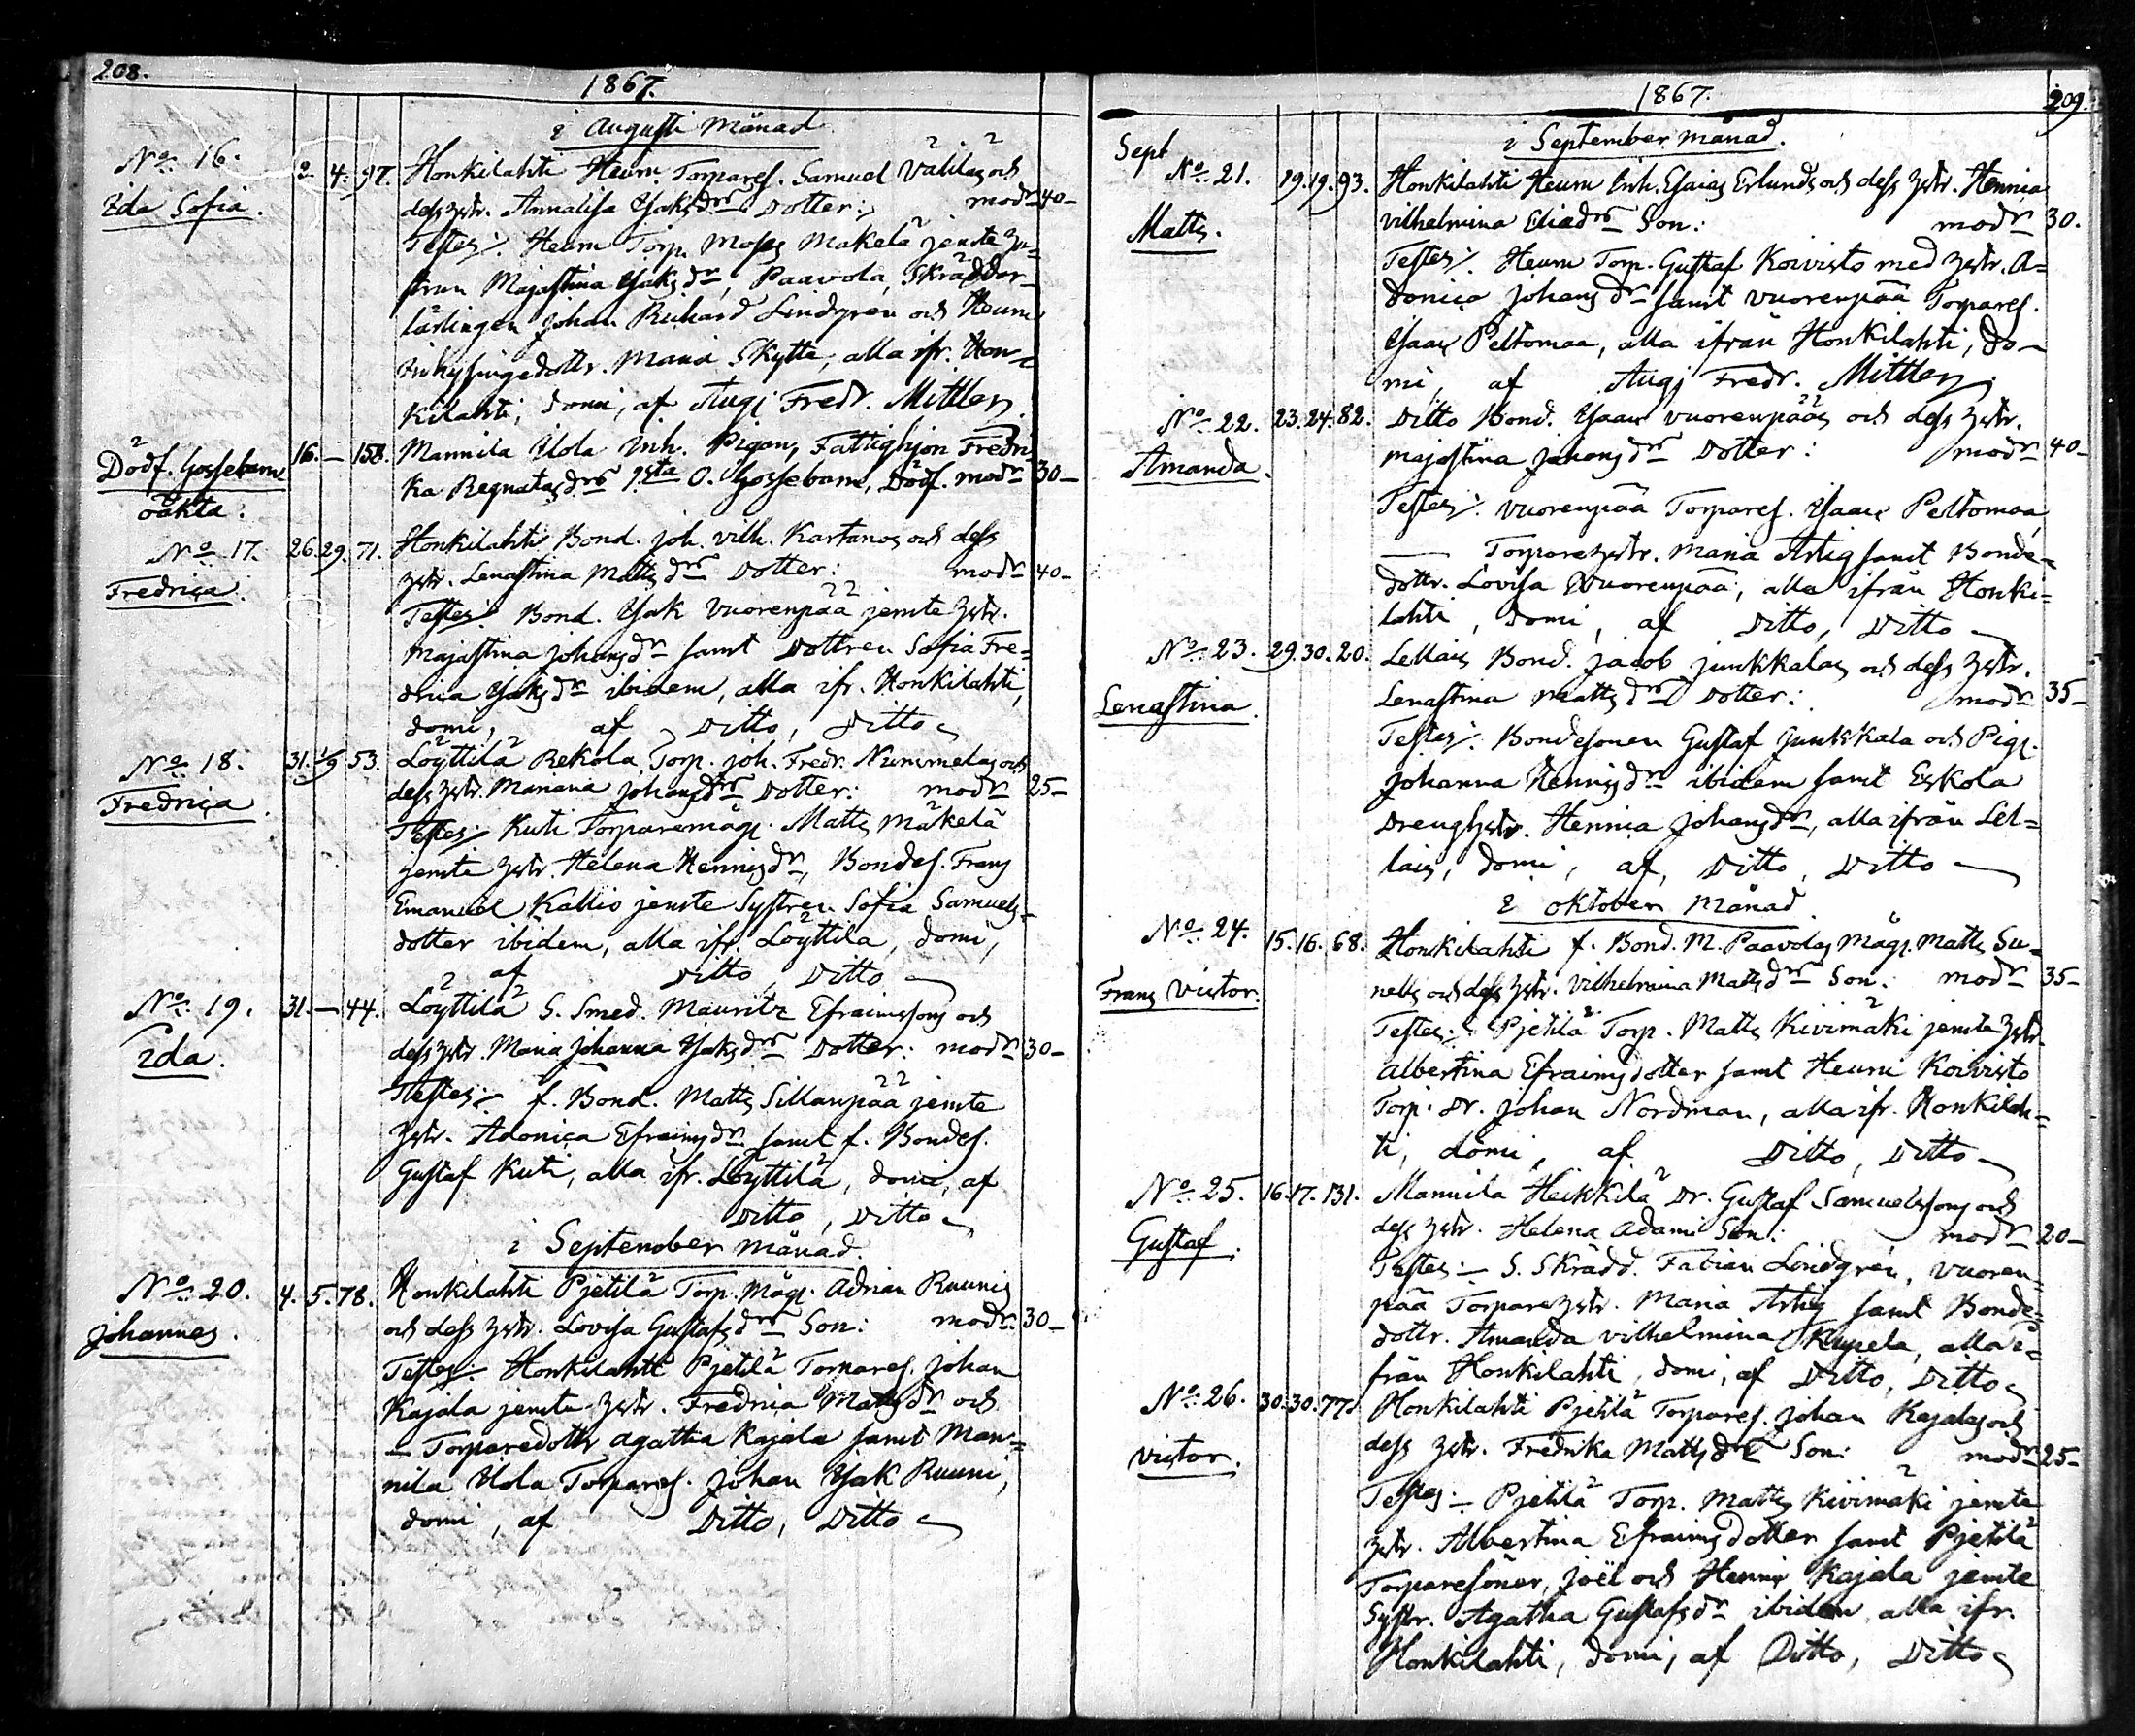 208.
1867.
i Augusti Månad
No 16. 2. 4. 97. Honkilahti Heurn Torpares. Samuel Välilas och
Ida Sofia. dess hstr. Annalisa Isaksdrs Dotter: modr 40-
Testes: Heurn Torp. Moses Mäkelä jemte hu-
strun Majastina Isaksdr, Paavola, Skräddar-
lärlingen Johan Richard Lindgren och Heurn
Inhysingedottr. Maria Skytte, alla ifr. Hon-
kilahti, domi, af Augj Fredr. Mittler,
Dödf. Gossebarn 16. — 158. Mannila Uola Inh. Pigan, Fattighjon Fredri
oäkta. ka Regnatasdrs 1sta O. Gossebarn, Dödf. modr 30-
No 17. 26. 29. 71. Honkilahti Bond. Joh. Vilh. Kartanos och dess
Fredrica. hstr. Lenastina Mattsdrs Dotter: modr 40-
Testes: Bond. Isak Vuorenpää jemte hstr.
Majastina Johansdr samt Dottren Sofia Fre-
drica Isaksdr ibidem, alla ifr. Honkilahti,
domi, af Ditto, Ditto
No 18. 31. 1/9 53. Löyttilä Rekola, Torp. Joh. Fredr. Nummelas och
Fredrica. dess hstr. Mariana Johansdrs Dotter: modr 25-
Testes: Kuti Torparemåg. Matts Mäkelä
jemte hstr. Helena Henrisdr, Bondes. Frans
Emanuel Kallio jemte Systren Sofia Samuels-
dotter ibidem, alla ifr. Löyttilä, domi,
af Ditto, Ditto
No 19. 31. — 44. Löyttilä S. Smed. Mauritz Efraimssons och
Ida. dess hstr. Maria Johanna Isaksdrs Dotter: modr 30-
Testes: f. Bond. Matts Sillanpää jemte
hstr. Adonica Efraimsdr samt f. Bondes.
Gustaf Kuti, alla ifr. Löyttilä, domi, af
Ditto, Ditto
i September månad.
No 20. 4. 5. 78. Honkilahti Pjetilä Torp. Måg. Adrian Ruunis
Johannes. och dess hstr. Lovisa Gustafsdrs Son: modr. 30-
Testes: Honkilahti Pjetilä Torpares. Johan
Kajala jemte hstr. Fredrica Mattsdr och
— Torparedottr Agatha Kajala samt Man-
nila Uola Torpares. Johan Isak Ruuni,
domi, af Ditto, Ditto
209.
1867.
i September månad.
Sept
No 21. 19. 19. 93. Honkilahti Heurn Inh. Esaias Erlunds och dess hstr. Hennica
Matts. Vilhelmina Eliædrs Son: modr 30.
Testes: Heurn Torp. Gustaf Koivisto med hstr. A-
donica Johansdr samt Vuorenpää Torpares.
Isaac Peltomaa, alla ifrån Honkilahti, do-
mi, af Augj Fredr. Mittler,
No 22. 23. 24. 82. Ditto Bond. Isaac Vuorenpääs och dess hstr.
Amanda. Majastina Johansdrs Dotter: modr 40-
Testes: Vuorenpää Torpares. Isaac Peltomaa,
— Torparehstr. Maria Artig samt Bonde-
dottr. Lovisa Vuorenpää, alla ifrån Honki-
lahti, domi, af Ditto, Ditto
No 23. 29. 30. 20. Lellais Bond. Jacob Junkkalas och dess hstr.
Lenastina. Lenastina Mattsdrs Dotter: modr 35-
Testes: Bondesonen Gustaf Junkkala och Pig.
Johanna Henrisdr ibidem samt Eskola
Drenghstr. Hennica Johansdr, alla ifrån Lel-
lais, domi, af, Ditto, Ditto
i Oktober Månad
No 24. 15. 16. 68. Honkilahti f. Bond. M. Paavolas Måg. Matts Su-
Frans Victor. nells och dess hstr. Vilhelmina Mattsdrs Son: modr 35-
Testes: Pjetilä Torp. Matts Kivimäki jemte hstr.
Albertina Efraimsdotter samt Heurn Koivisto
Torp. Dr. Johan Nordman, alla ifr. Honkilah-
ti, domi, af Ditto, Ditto
No 25. 16. 17. 131. Mannila Heikkilä Dr. Gustaf Samuelssons och
Gustaf. dess hstr. Helena Adami Son: modr 20-
Testes: S. Skrädd. Fabian Lindgren, Vuoren-
pää Torparehstr. Maria Artig samt Bonde-
dottr. Amanda Vilhelmina Knpela, alla i-
från Honkilahti, domi, af Ditto, Ditto
No 26. 30. 30. 77. Honkilahti Pjetilä Torpares. Johan Kajalas och
Victor. dess hstr. Fredrika Mattsdrs Son: modr 25-
Testes: Pjetilä Torp. Matts Kivimäki jemte
hstr. Albertina Efraimsdotter samt Pjetilä
Torparesöner, Joël och Henric Kajala jemte
Systr. Agatha Gustafsdr ibidem, alla ifr.
Honkilahti, domi, af Ditto, Ditto